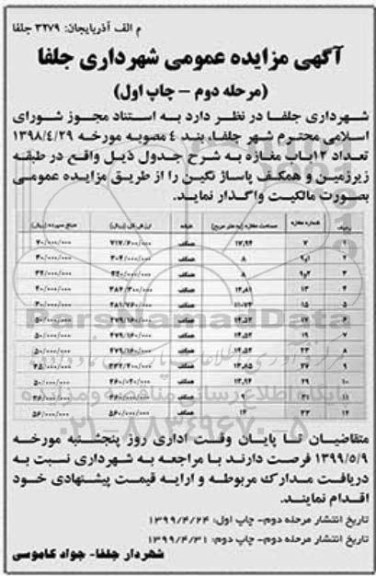 م الف آذربایجان: ۳۲۷۹ جلفا
آگهی مزایده عمومی شهرداری جلفا
(مرحله دوم – چاپ اول)
شهرداری جلفا در نظر دارد به استناد مجوز شورای
اسلامی محترم شهر جلفا، بند ۴ مصوبه مورخه ۱۳۹۸/۴/۲۹
تعداد ۱۲باب مغازه به شرح جدول ذیل واقع در طبقه
زیرزمین و همکف پاساژ نگین را از طریق مزایده عمومی
بصورت مالکیت واگذار نماید.
ردیف شماره مغازه مساحت مغازه (به متر مربع) طبقه ارزش کل (ریال) مبلغ سپرده (ریال)
۱ ۷ ۱۷,۹۴ همکف ۷۱۷/۶۰۰/۰۰۰ ۷۰/۰۰۰/۰۰۰
۲ ۸ همکف ۳۰/۰۰۰/۰۰۰
۳ ۸ همکف
۴ ۱۳ ۱۴,۸۱ همکف ۴۰/۰۰۰/۰۰۰
۵ ۱۵ همکف ۳۰/۰۰۰/۰۰۰
۶ ۱۷ ۱۴,۵۲ همکف ۲۷۹/۱۶۰/۰۰۰ ۵۰/۰۰۰/۰۰۰
۷ ۱۹ ۱۴,۵۲ همکف ۲۷۹/۱۶۰/۰۰۰ ۵۰/۰۰۰/۰۰۰
۸ ۲۳ ۱۴,۵۲ همکف ۲۷۹/۱۶۰/۰۰۰ ۵۰/۰۰۰/۰۰۰
۹ ۲۷ ۱۳,۸۵ همکف
۱۰ ۲۹ ۱۳,۹۴ همکف ۵۰/۰۰۰/۰۰۰
۱۱ ۳۱ همکف
۱۲ ۳۳ ۱۴ همکف ۵۶۰/۰۰۰/۰۰۰ ۵۶/۰۰۰/۰۰۰
ParsNamadData
۰۲۱-۸۸۳۴۹۶۷۰-۵
متقاضیان تا پایان وقت اداری روز پنجشنبه مورخه
۱۳۹۹/۵/۹ فرصت دارند با مراجعه به شهرداری نسبت به
دریافت مدارک مربوطه و ارایه قیمت پیشنهادی خود
اقدام نمایند.
تاریخ انتشار مرحله دوم- چاپ اول: ۱۳۹۹/۴/۲۴
تاریخ انتشار مرحله دوم- چاپ دوم: ۱۳۹۹/۴/۳۱
شهردار جلفا- جواد کاموسی